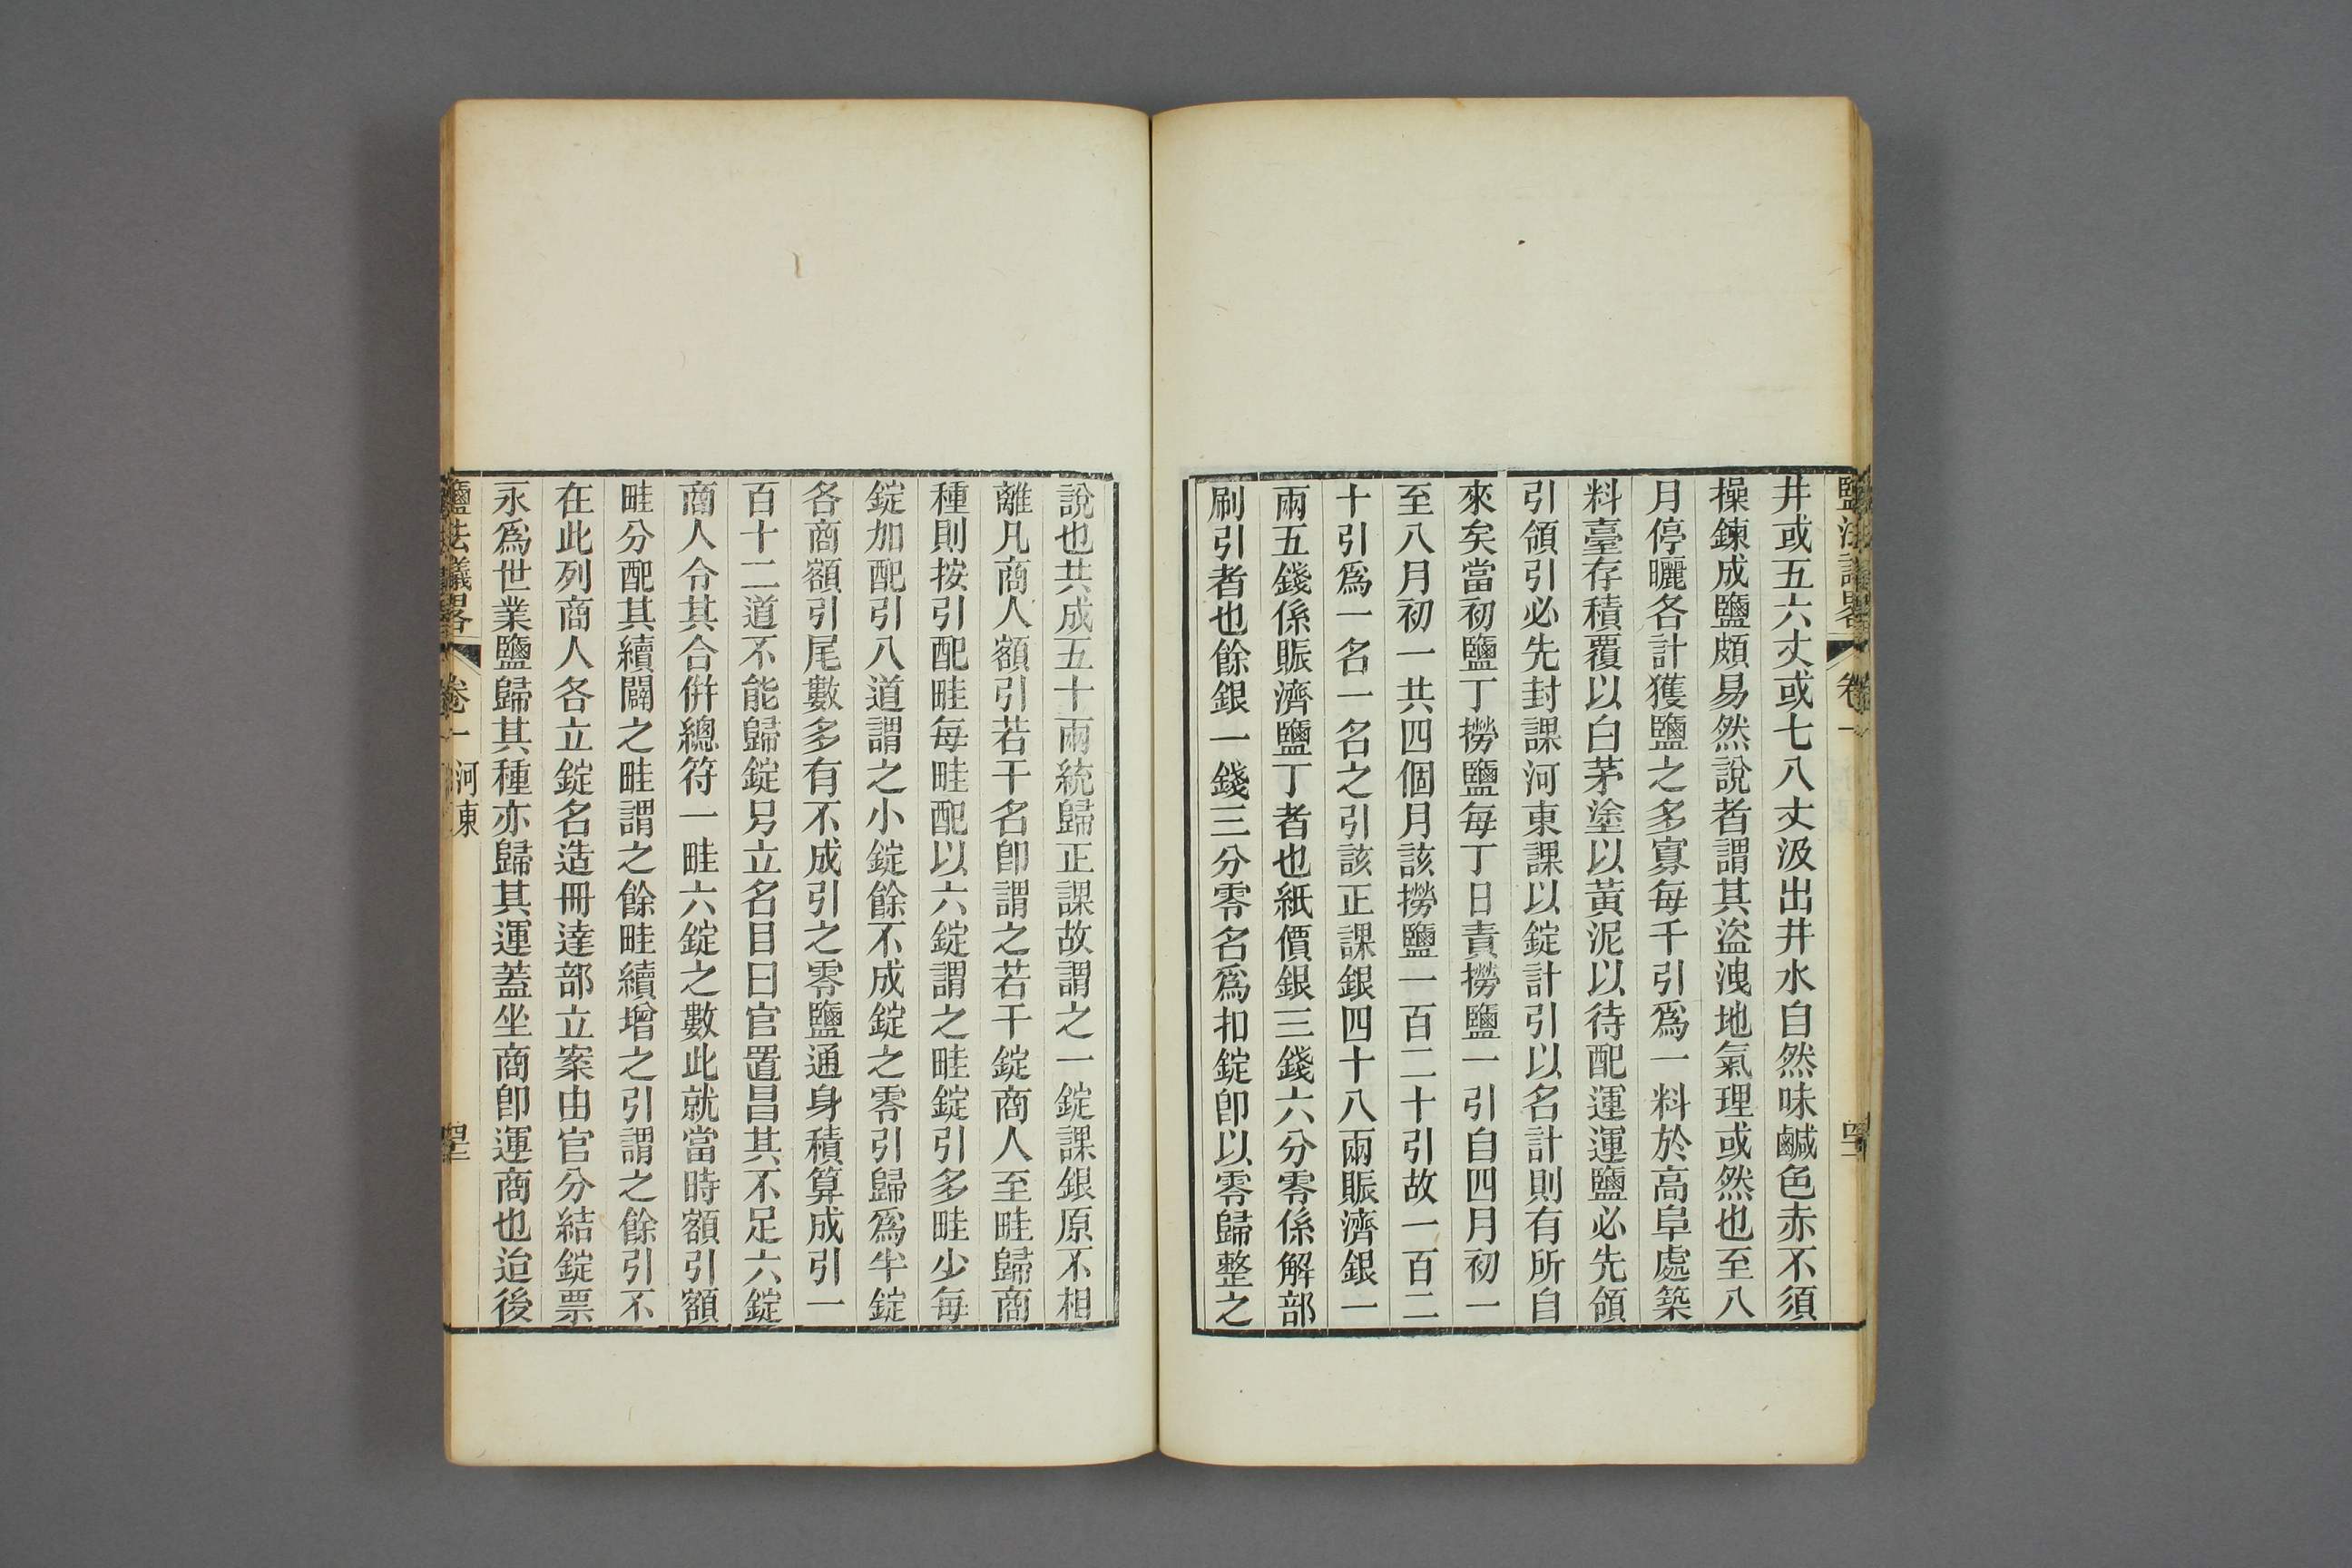 井或五六丈或七八丈汲出井水自然味鹹色赤不須
操鍊成鹽頗易然說者謂其盜洩地氣理或然也至八
月停曬各計獲鹽之多寡每千引爲一料於高阜處築
料臺存積覆以白茅塗以黃泥以待配運運鹽必先領
引領引必先封課河東課以錠計引以名計則有所自
來矣當初鹽丁撈鹽每丁日責撈鹽一引自四月初一
至八月初一共四個月該撈鹽一百二十引故一百二
十引爲一名一名之引該正課銀四十八兩賑濟銀一
兩五錢係賑濟鹽丁者也紙價銀三錢六分零係解部
刷引者也餘銀一錢三分零名爲扣錠卽以零歸整之
說也共成五十兩統歸正課故謂之一錠課銀原不相
離凡商人額引若干名卽謂之若干錠商人至畦歸商
種則按引配畦每畦配以六錠謂之畦錠引多畦少每
錠加配引八道謂之小錠餘不成錠之零引歸爲半錠
各商額引尾數多有不成引之零鹽通身積算成引一
百十二道不能歸錠另立名目曰官置昌其不足六錠
商人令其合倂總符一畦六錠之數此就當時額引額
畦分配其續闢之畦謂之餘畦續增之引謂之餘引不
在此列商人各立錠名造冊達部立案由官分結錠票
永爲世業鹽歸其種亦歸其運蓋坐商卽運商也迨後
鹽法議畧 卷一 河東